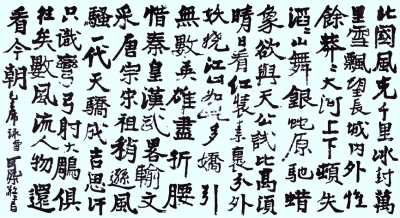 北國風光千里冰封萬
里雪飄望長城內外惟
餘莽〻大河上下頓失
滔〻山舞銀蛇原馳蠟
象欲與天公試比高須
晴日看紅裝素裹分外
妖嬈江山如此多嬌引
無數英雄盡折腰
惜秦皇漢武畧輸文
采唐宗宋祖稍遜風
騷一代天驕成吉思汗
只識彎弓射大鵰俱
往矣數風流人物還
看今朝
毛主席詠雪